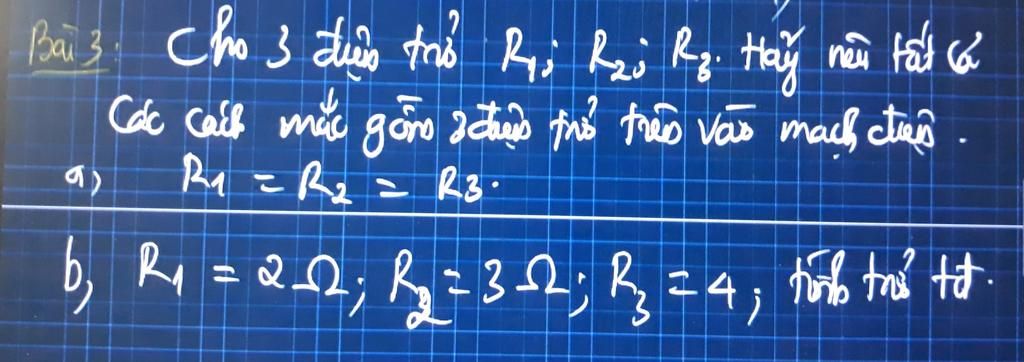 Bài 3: Cho 3 điện trở R1; R2; R3. Hãy nêu tất cả
Các cách mắc gồm 3 điện trở trên vào mạch điện.
a) R1 = R2 = R3.
b, R1 = 2Ω; R2 = 3Ω; R3 = 4; tính trở tđ.